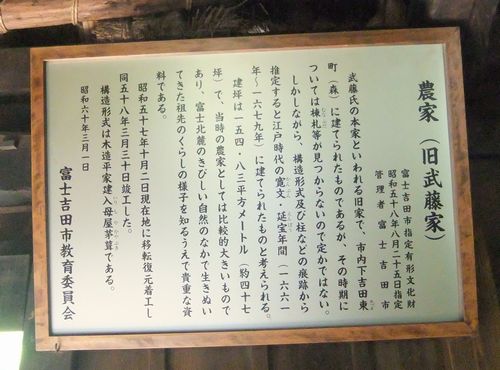 農家（旧武藤家）
富士吉田市指定有形文化財
昭和五十八年八月二十五日指定
管理者　富士吉田市
武藤氏の本家といわれる旧家で、市内下吉田東
町（森）に建てられたものであるが、その時期に
ついては棟札等が見つからないので定かではない。
しかしながら、構造形式及び柱などの痕跡から
推定すると江戸時代の寛文・延宝年間（一六六一
年～一六七九年）に建てられたものと考えられる。
建坪は一五四・八三平方メートル（約四十七
坪）で、当時の農家としては比較的大きいもので
あり、富士北麓のきびしい自然のなかで生きぬい
てきた祖先のくらしの様子を知るうえで貴重な資
料である。
昭和五十七年十月二日現在地に移転復元着工し
同五十八年三月三十日竣工した。
構造形式は木造平家建入母屋茅葺である。
昭和六十年三月一日
富士吉田市教育委員会